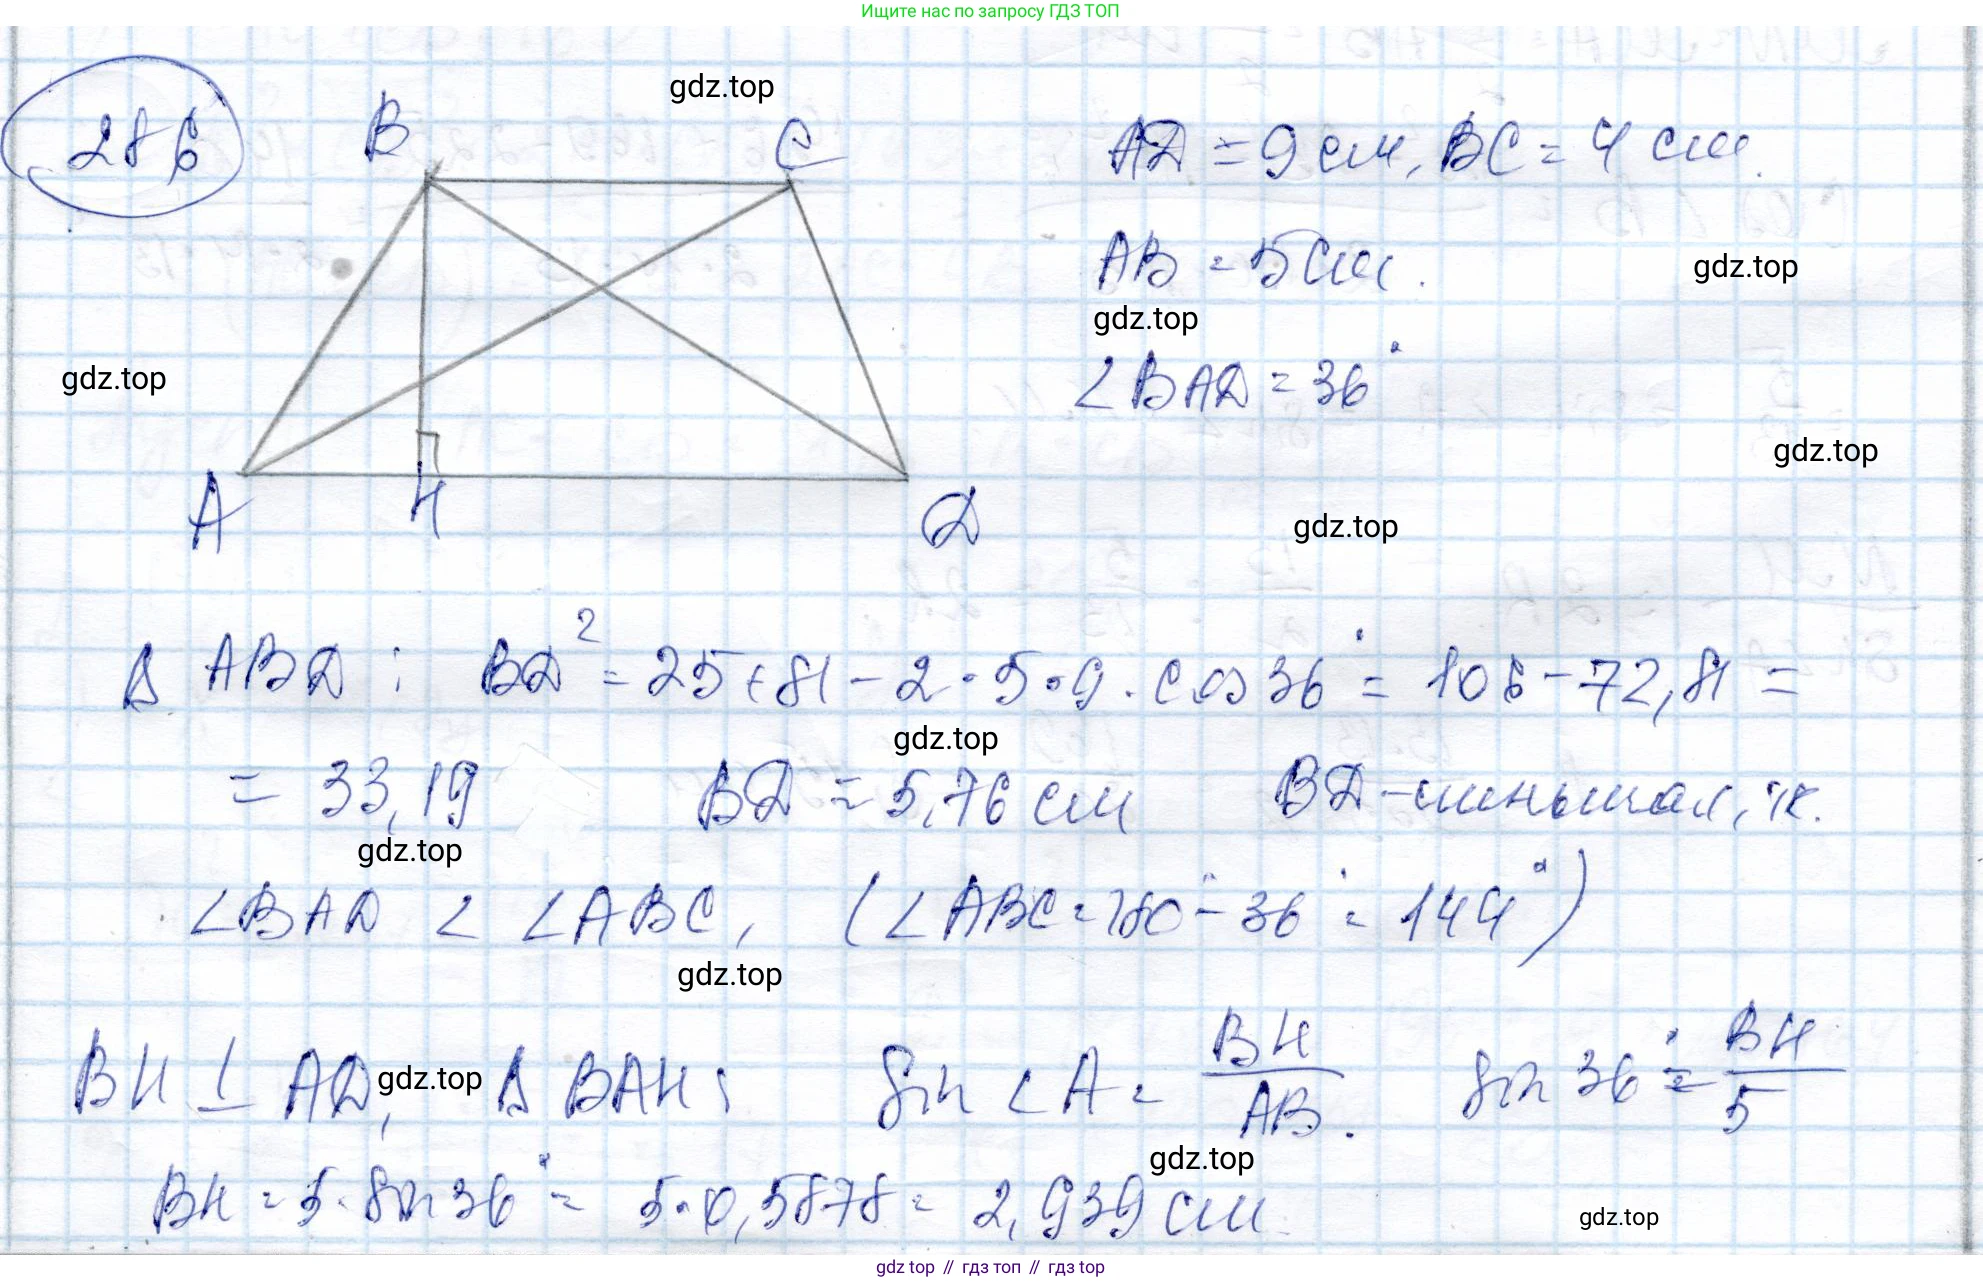 Ищите нас по запросу ГДЗ ТОП
286
B
C
gdz.top
AD = 9 см, BC = 4 см.
AB = 5 см.
gdz.top
gdz.top
∠BAD = 36°
gdz.top
gdz.top
A
H
D
gdz.top
Δ ABD: BD² = 25 + 81 - 2 · 5 · 9 · cos 36° = 106 - 72,81 =
gdz.top
= 33,19 BD = 5,76 см BD - меньшая, т.к.
gdz.top
∠BAD < ∠ABC, (∠ABC = 180° - 36° = 144°)
gdz.top
BH ⊥ AD, gdz.top Δ BAH: sin ∠A = BH/AB. sin 36° = BH/5
gdz.top
BH = 5 · sin 36° = 5 · 0,5878 = 2,939 см
gdz.top
gdz top // гдз топ // гдз top